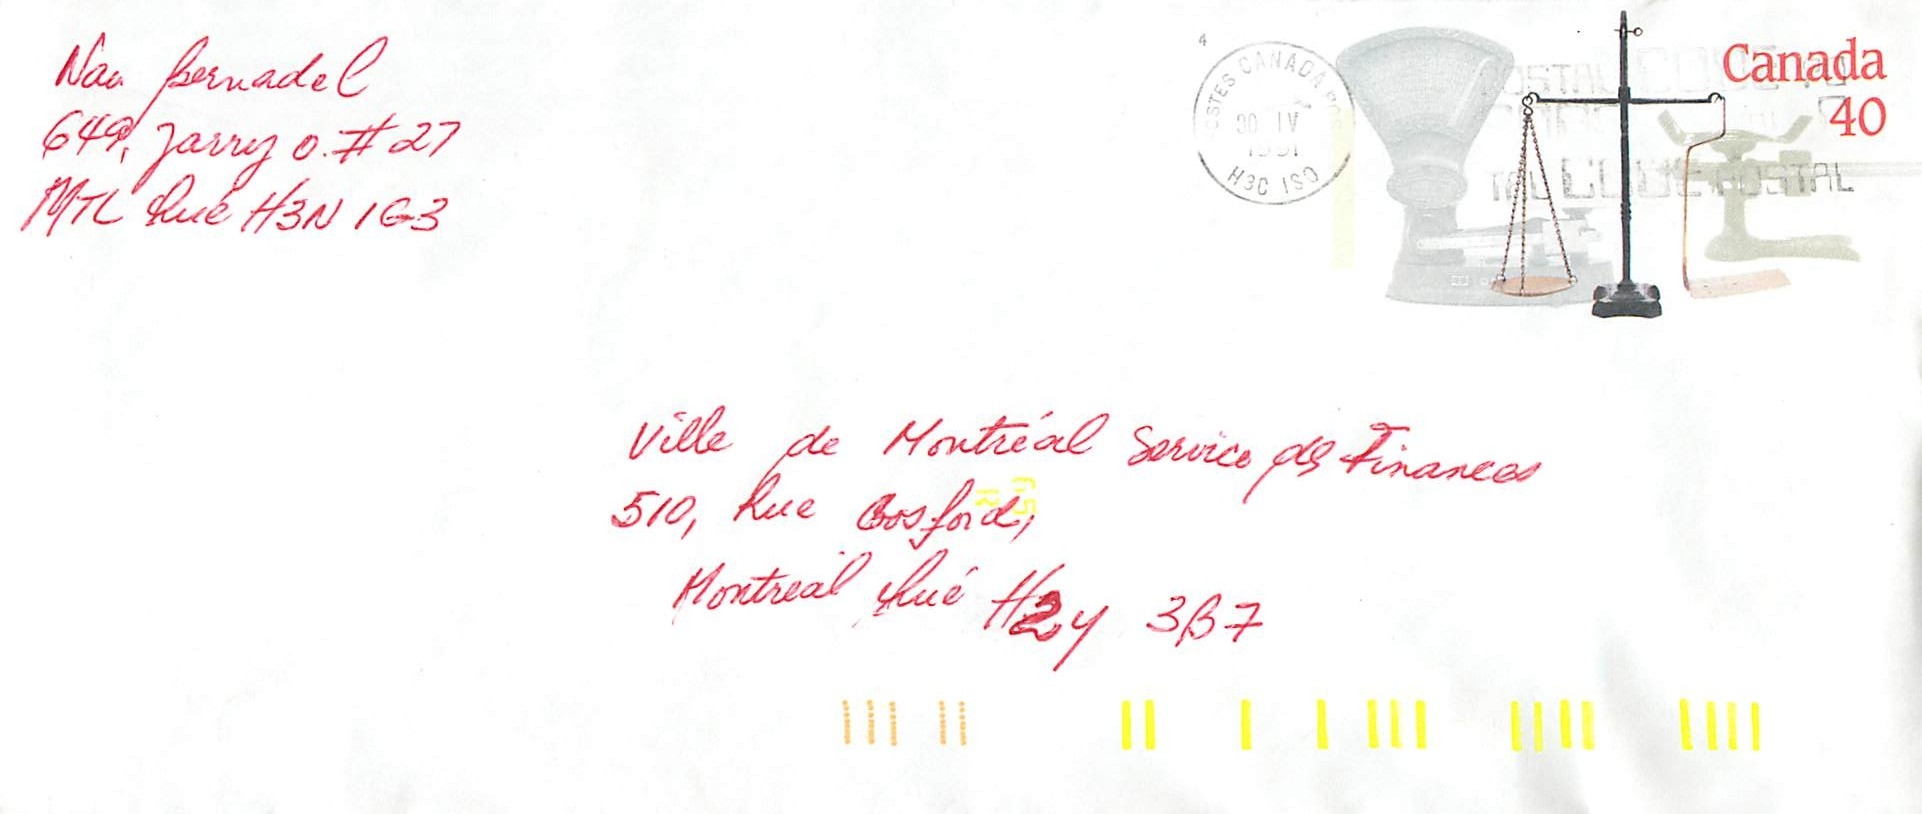 Nau Bernadel
649, Jarry O. # 27
MTL Qué H3N 1G3
4
POSTES CANADA POS
30 IV
1991
H3C 1S0
POSTAL CODE
CODE POSTAL
Canada
40
Ville de Montréal Service des Finances
510, Rue Gosford,
Montréal Qué H2Y 3B7